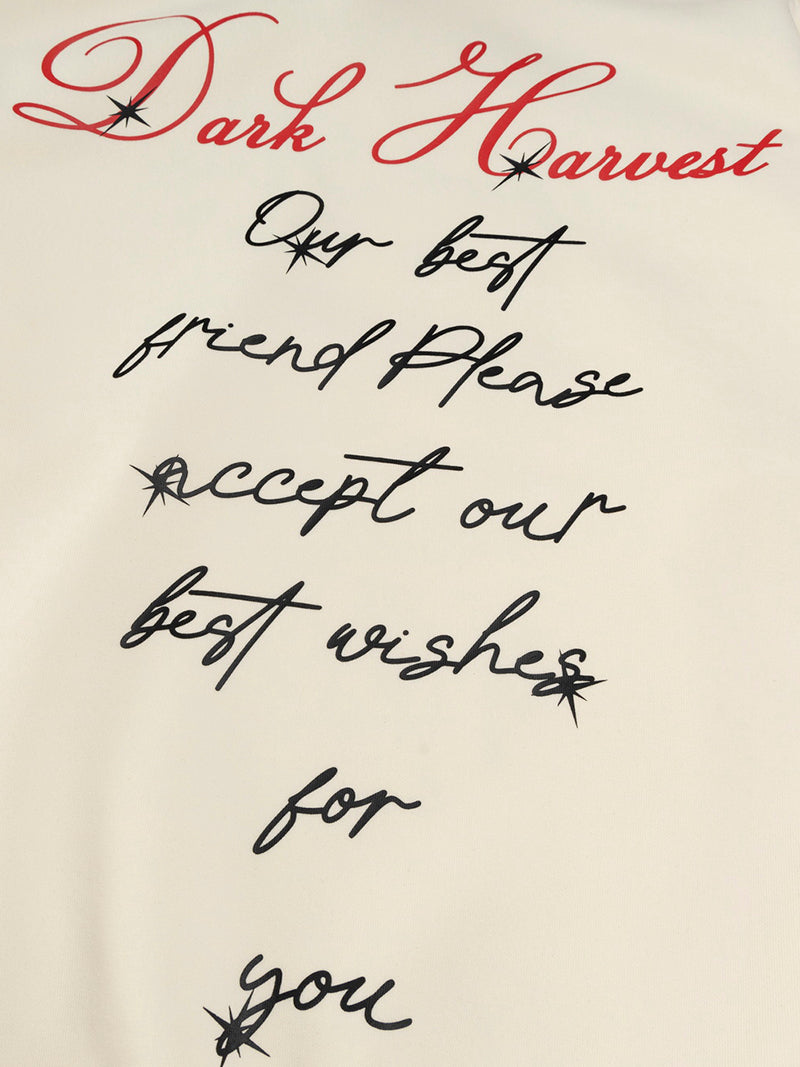 Dark Harvest
Our best
friend Please
accept our
best wishes
for
you